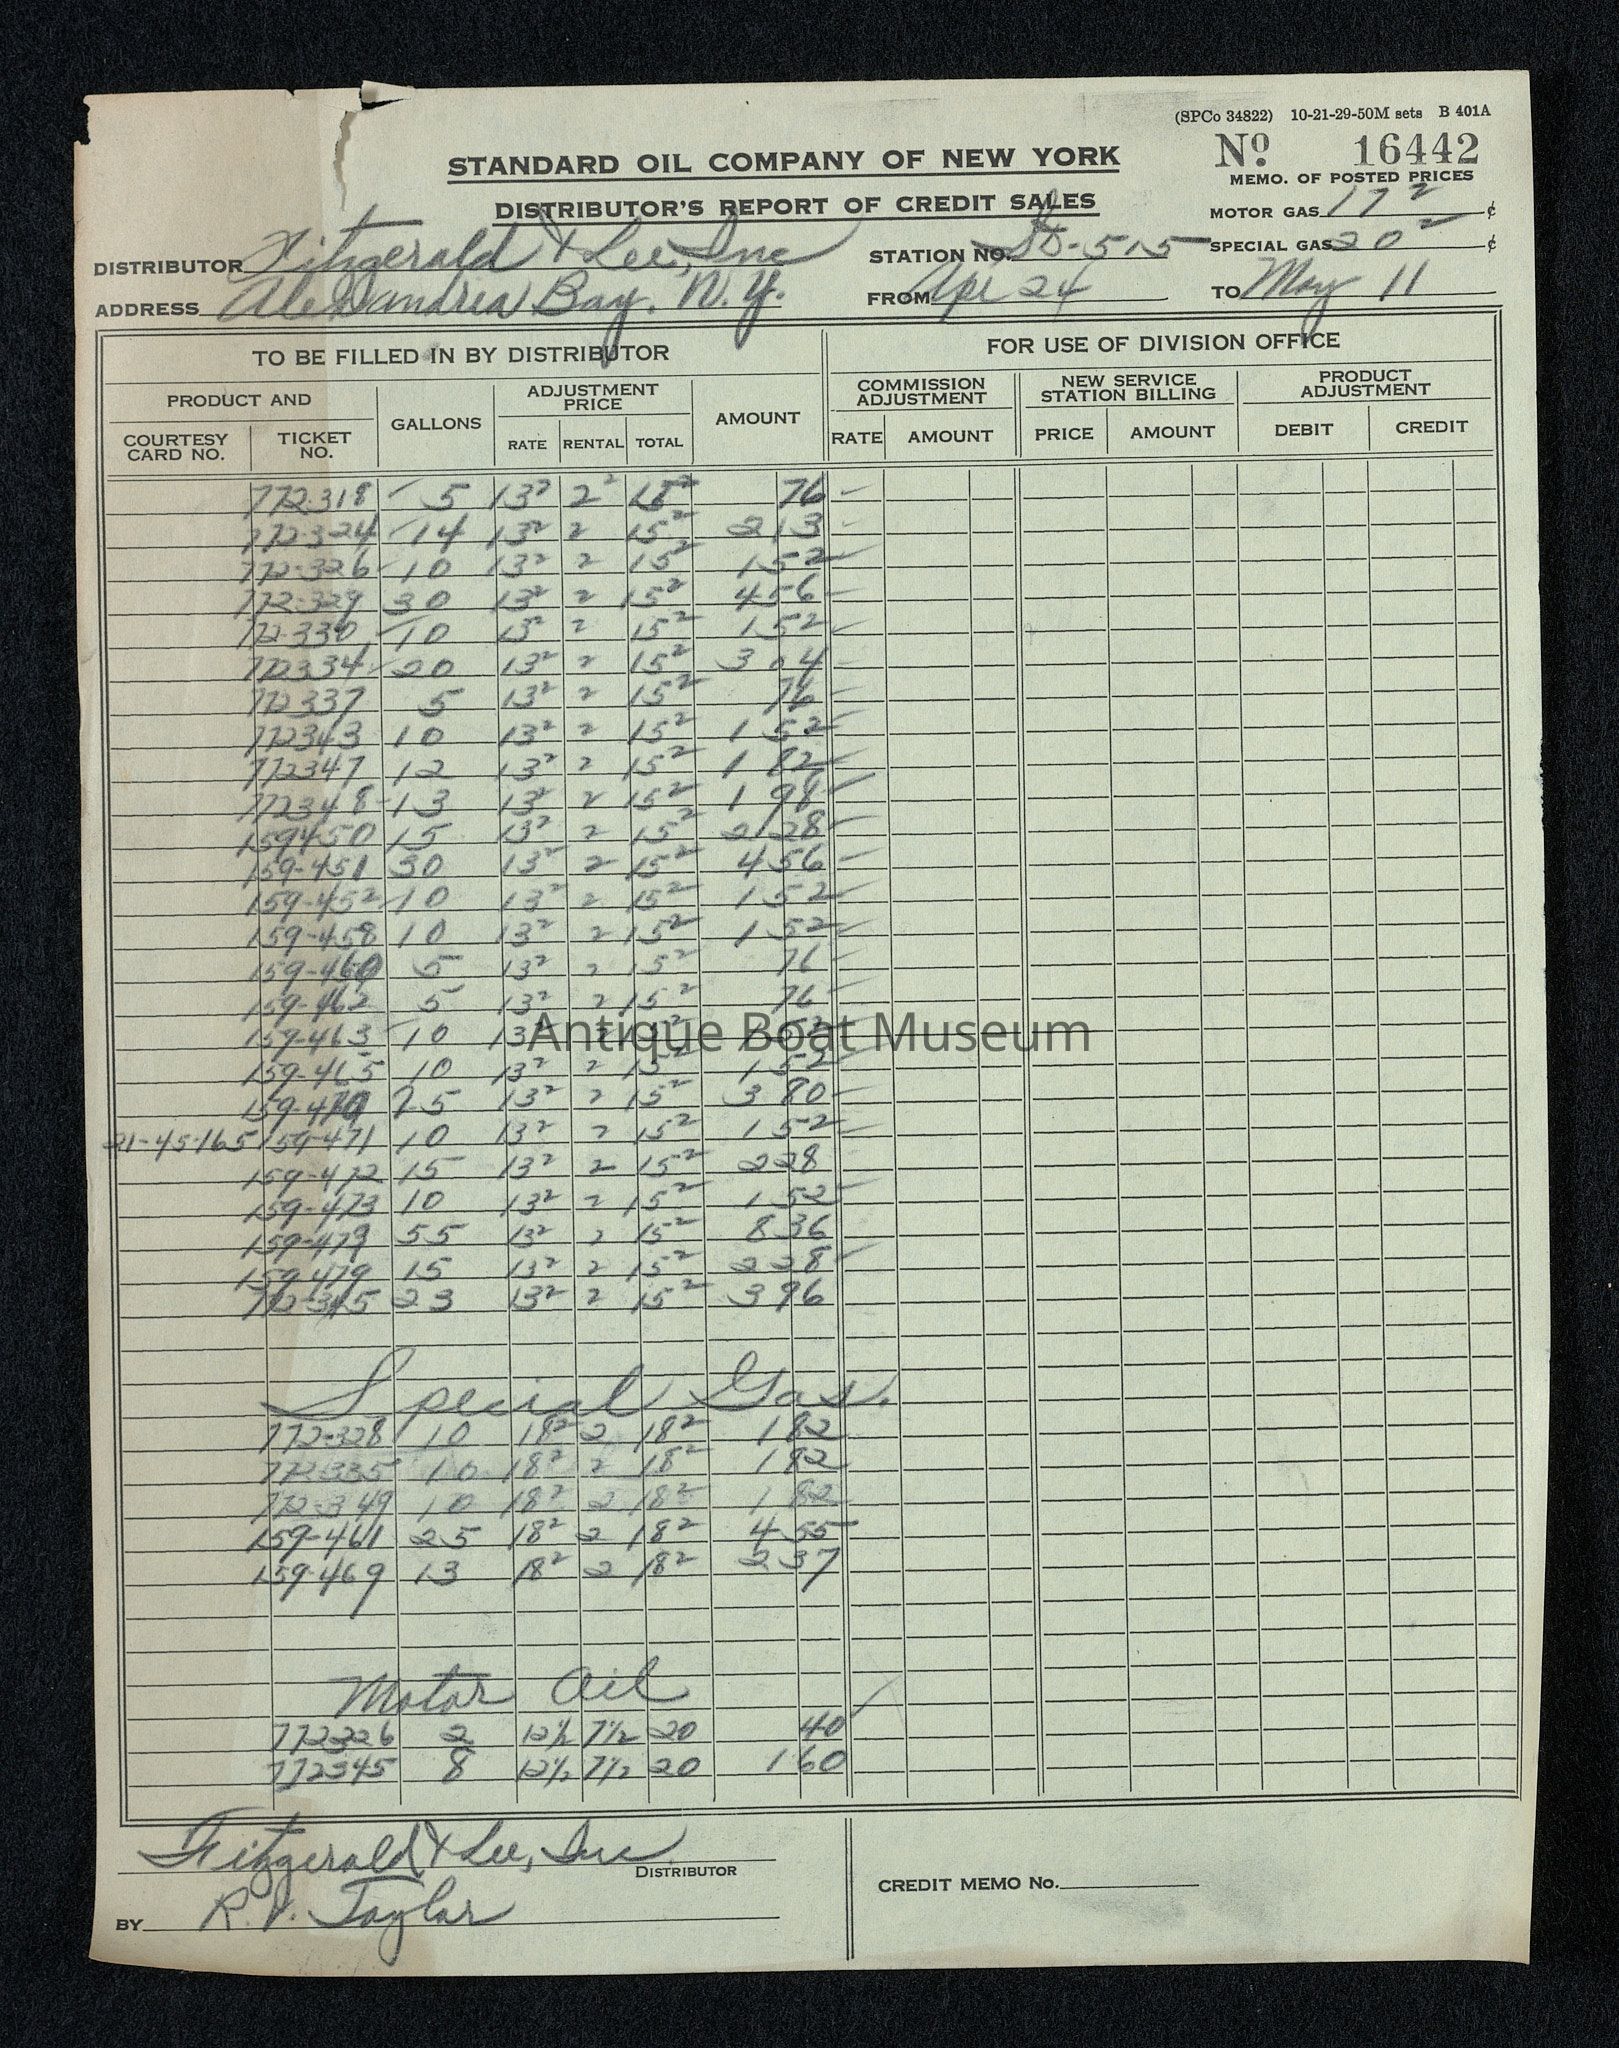 (SPCo 34822) 10-21-29-50M sets B 401A
STANDARD OIL COMPANY OF NEW YORK
Nº 16442
MEMO. OF POSTED PRICES
DISTRIBUTOR'S REPORT OF CREDIT SALES
MOTOR GAS 17 2 ¢
DISTRIBUTOR Fitzgerald & Lee, Inc
STATION NO. SD-515
SPECIAL GAS 20 2 ¢
ADDRESS Alexandria Bay. N.Y.
FROM Apr 24 TO May 11
TO BE FILLED IN BY DISTRIBUTOR
FOR USE OF DIVISION OFFICE
PRODUCT AND
COURTESY CARD NO.
TICKET NO.
GALLONS
ADJUSTMENT PRICE
RATE RENTAL TOTAL
AMOUNT
COMMISSION ADJUSTMENT
RATE AMOUNT
NEW SERVICE STATION BILLING
PRICE AMOUNT
PRODUCT ADJUSTMENT
DEBIT CREDIT
772-318 5 13² 2² 15² 76
772-324 14 13² 2 15² 213
772-326 10 13² 2 15² 152
772-329 30 13² 2 15² 456
772-330 10 13² 2 15² 152
772334 20 13² 2 15² 304
772337 5 13² 2 15² 76
772343 10 13² 2 15² 152
772347 12 13² 2 15² 182
772348 13 13² 2 15² 198
159450 15 13² 2 15² 228
159-451 30 13² 2 15² 456
159-452 10 13² 2 15² 152
159-458 10 13² 2 15² 152
159-460 5 13² 2 15² 76
159-462 5 13² 2 15² 76
159-463 10 13² 2 15² 152
Antique Boat Museum
159-465 10 13² 2 15² 152
159-470 25 13² 2 15² 380
21-45-165 159-471 10 13² 2 15² 152
159-472 15 13² 2 15² 228
159-473 10 13² 2 15² 152
159-479 55 13² 2 15² 836
159-479 15 13² 2 15² 228
772-345 23 13² 2 15² 396
Special Gas.
772-328 10 18² 2 18² 182
772335 10 18² 2 18² 182
772-349 10 18² 2 18² 182
159-461 25 18² 2 18² 455
159-469 13 18² 2 18² 237
Motor Oil
772326 2 12½ 7½ 20 40
772345 8 12½ 7½ 20 160
Fitzgerald & Lee, Inc
DISTRIBUTOR
CREDIT MEMO No.
BY R.V. Taylor